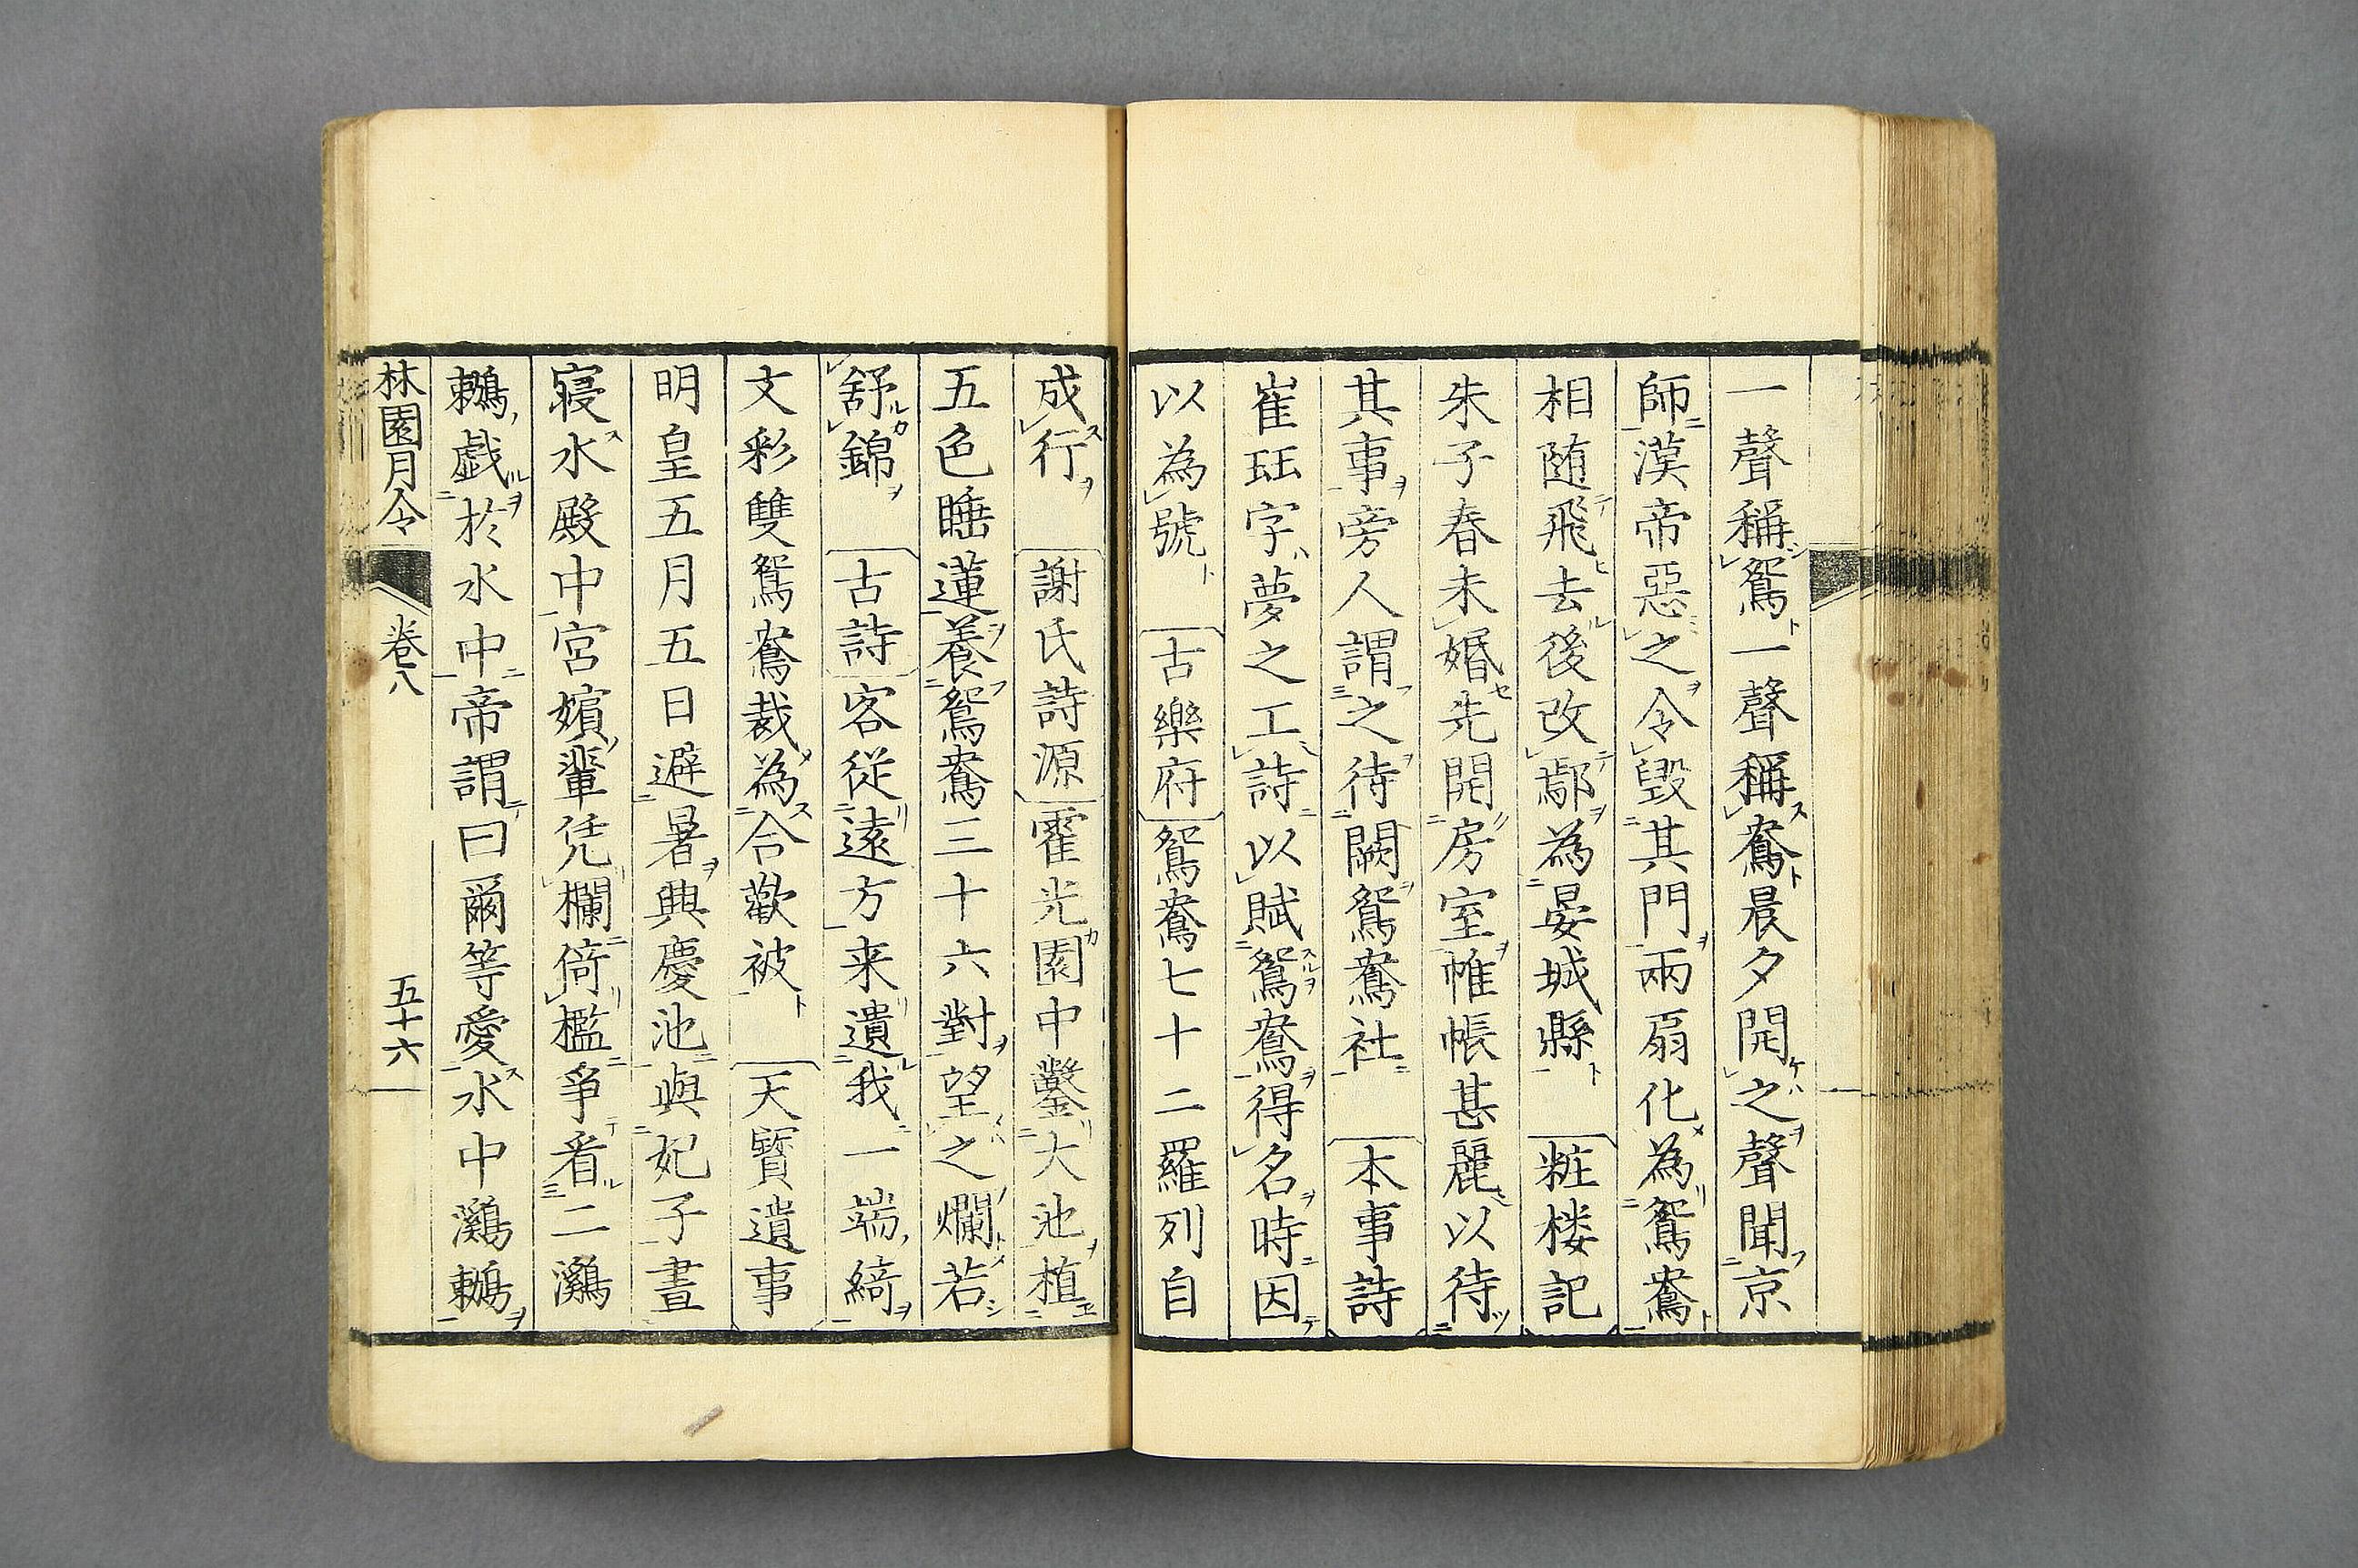 一聲稱鴛一聲稱鴦晨夕開之聲聞京
師漢帝惡之令毀其門兩扇化為鴛鴦
相随飛去後改鄢為晏城縣 粧楼記
朱子春未婚先開房室帷帳甚麗以待
其事旁人謂之待闕鴛鴦社 本事詩
崔珏字夢之工詩以賦鴛鴦得名時因
以為號 古樂府 鴛鴦七十二羅列自
成行 謝氏詩源 霍光園中鑿大池植
五色睡蓮養鴛鴦三十六對望之爛若
舒錦 古詩 客從遠方来遺我一端綺
文彩雙鴛鴦裁為合歡被 天寳遺事
明皇五月五日避暑興慶池與妃子晝
寝水殿中宮嬪輩凭欄倚檻爭看二鸂
鶒戯於水中帝謂曰爾等愛水中鸂鶒
林園月令 卷八 五十六